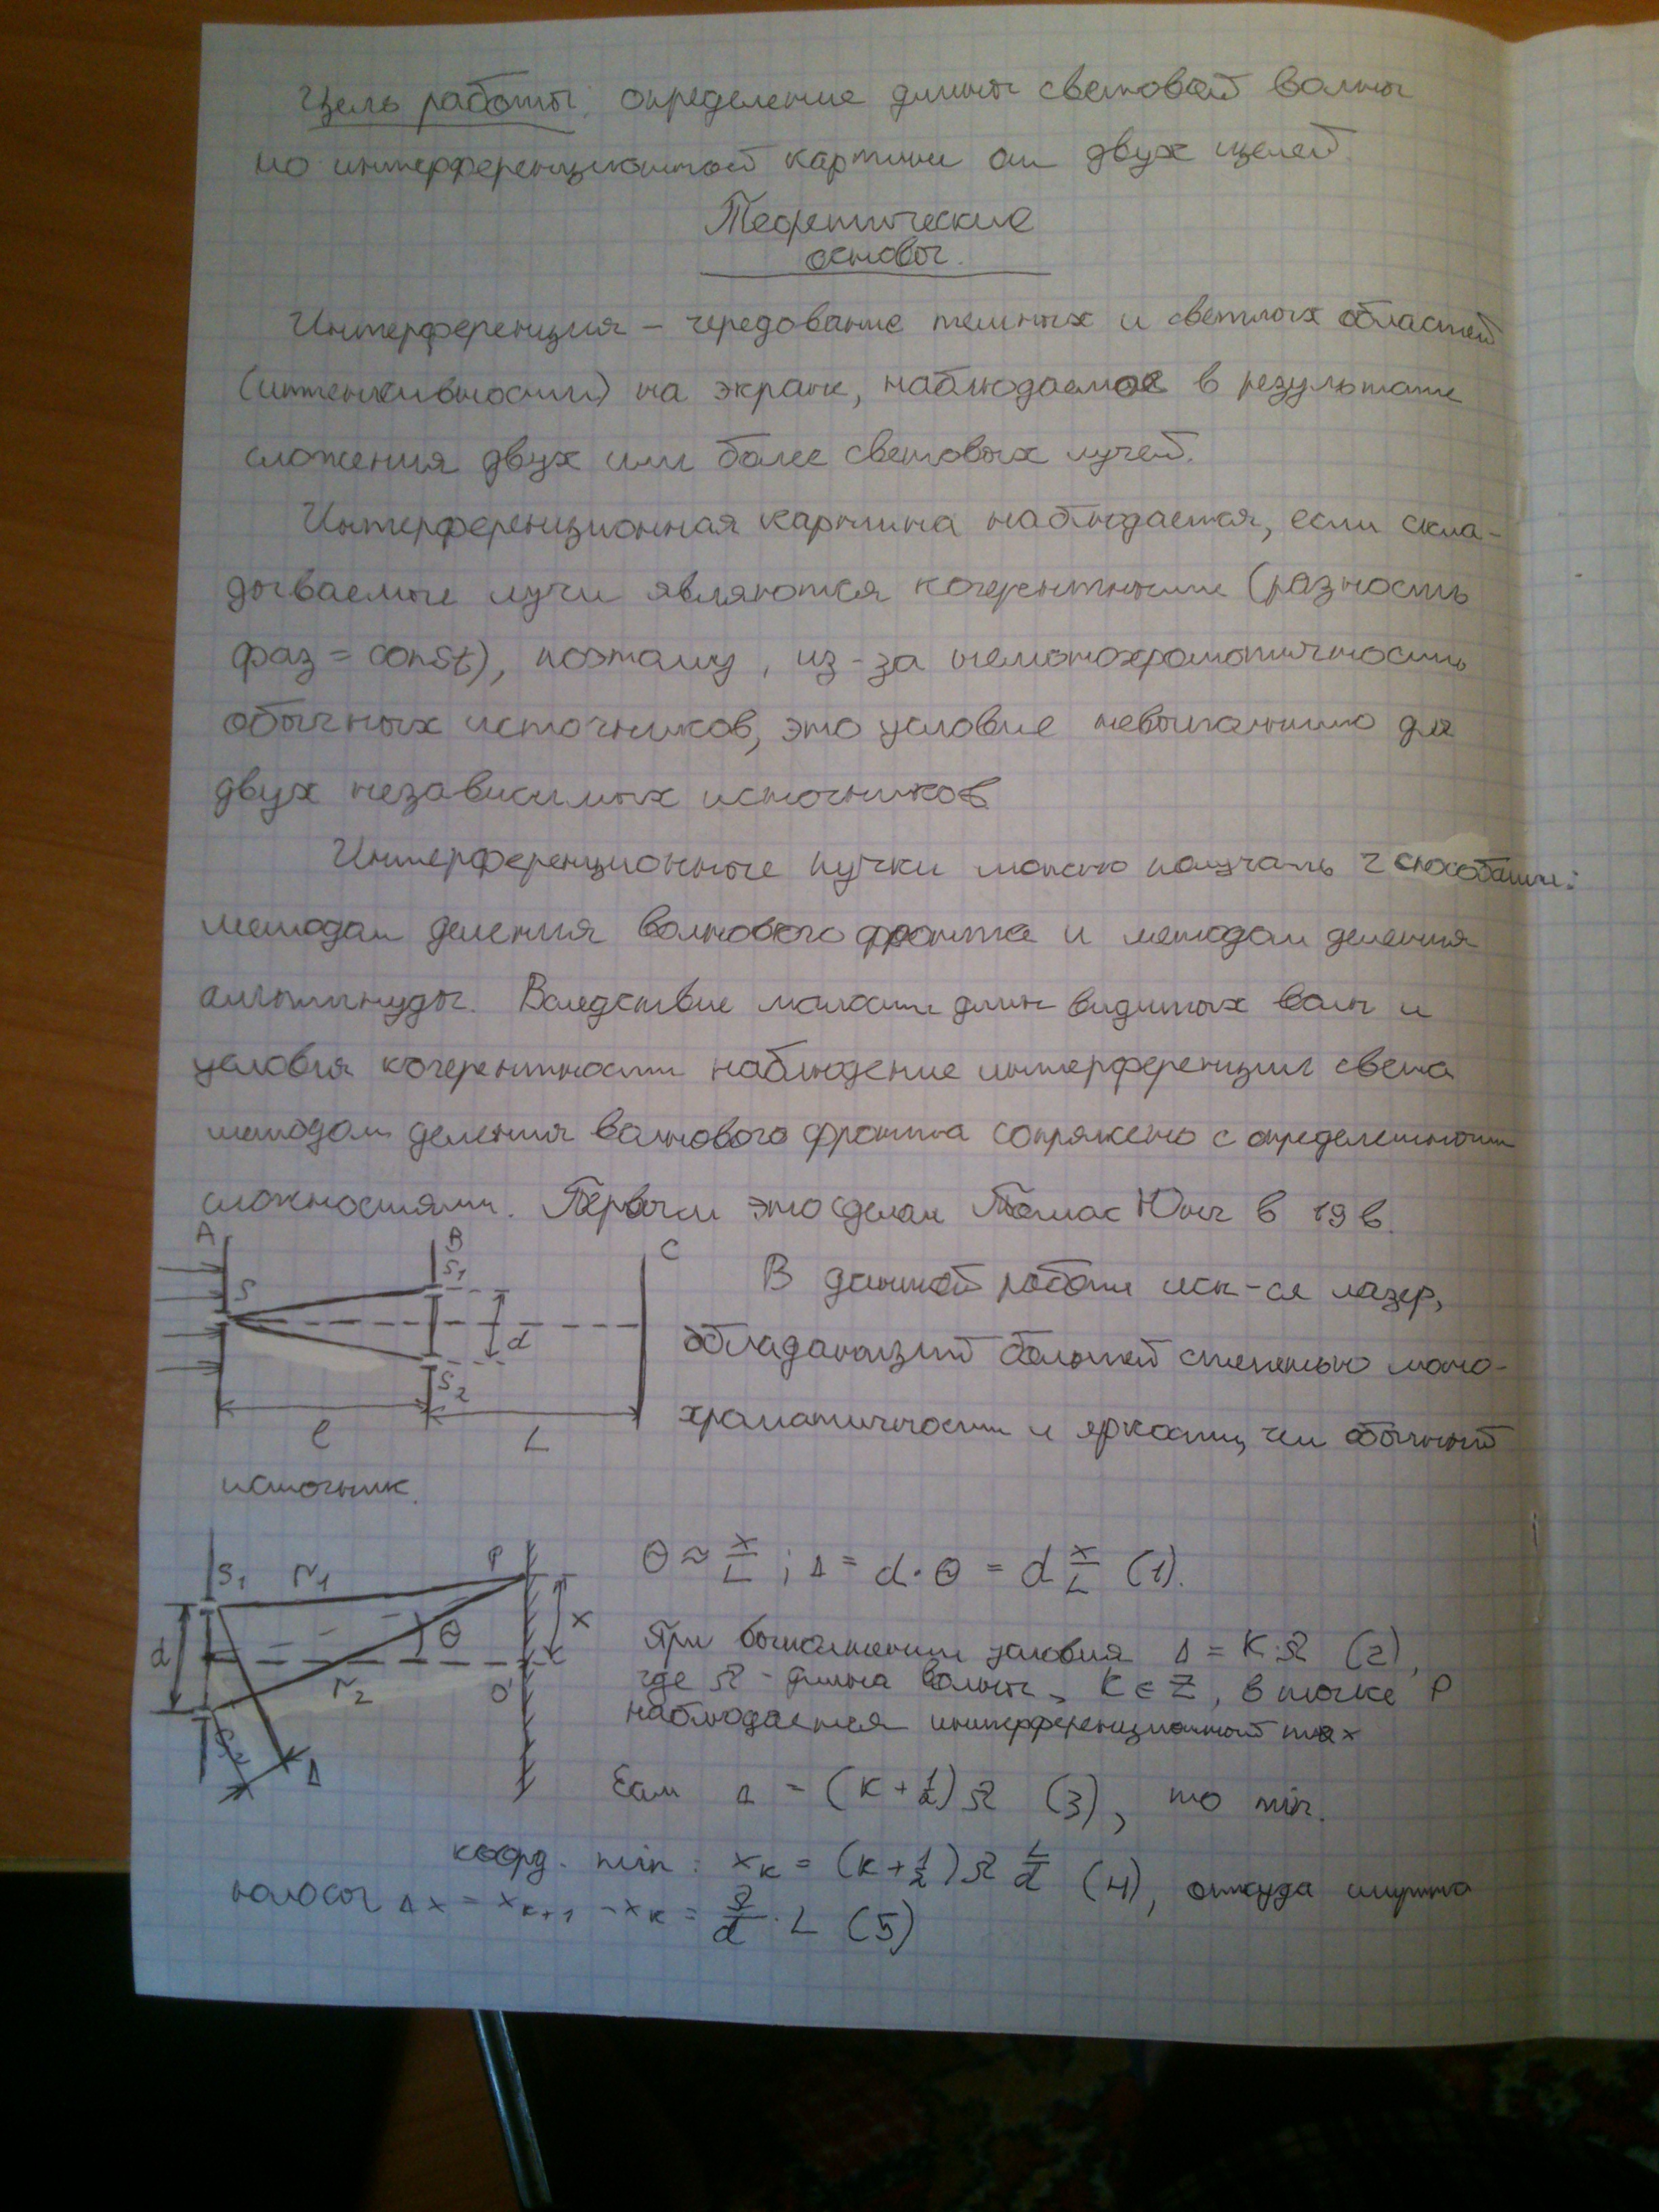 Цель работы: определение длины световой волны
по интерференционной картине от двух щелей.
Теоретические
основы.
Интерференция – чередование темных и светлых областей
(интенсивности) на экране, наблюдаемое в результате
сложения двух или более световых лучей.
Интерференционная картина наблюдается, если скла-
дываемые лучи являются когерентными (разность
фаз = const), поэтому, из-за немонохроматичности
обычных источников, это условие невыполнимо для
двух независимых источников
Интерференционные пучки можно получать 2 способами:
методом деления волнового фронта и методом деления
амплитуды. Вследствие малости длин видимых волн и
условия когерентности наблюдение интерференции света
методом деления волнового фронта сопряжено с определенными
сложностями. Первым это сделал Томас Юнг в 19 в.
A B C
S S₁ S₂ d
l L
В данной работе исп-ся лазер,
обладающий большей степенью моно-
хроматичности и яркости, чем обычный
источник.
S₁ r₁ P x
d θ r₂ O
S₂ Δ
θ ≈ x/L ; Δ = d · θ = d x/L (1).
При выполнении условия Δ = K · λ (2),
где λ - длина волны, K ∈ Z, в точке P
наблюдается интерференционный max
Если Δ = (K + 1/2) λ (3), то min.
коорд. min: xₖ = (K + 1/2) λ L/d (4), откуда ширина
полосы Δx = xₖ₊₁ - xₖ = λ/d · L (5)